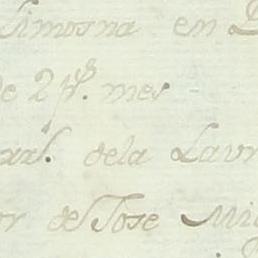 Limosna en
de 2 p.s mes
dela Laur
or de Jose Mig